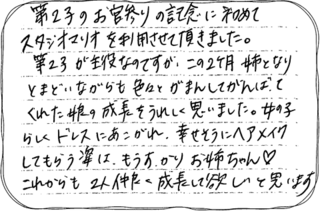 第2子のお宮参りの記念に初めて
スタジオマリオを利用させて頂きました。
第2子が主役なのですが、この2ヶ月 姉となり
とまどいながらも色々とがまんしてがんばって
くれた娘の成長をうれしく思いました。女の子
らしくドレスにあこがれ、幸せそうにヘアメイク
してもらう姿は、もうすっかりお姉ちゃん♡
これからも2人仲良く成長して欲しいと思います